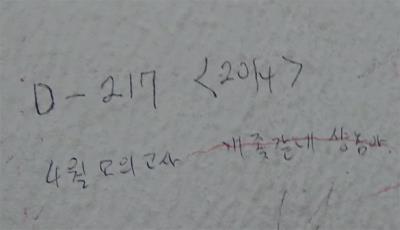 D-217 <2014>
4월 모의고사 개좆같네 상놈아